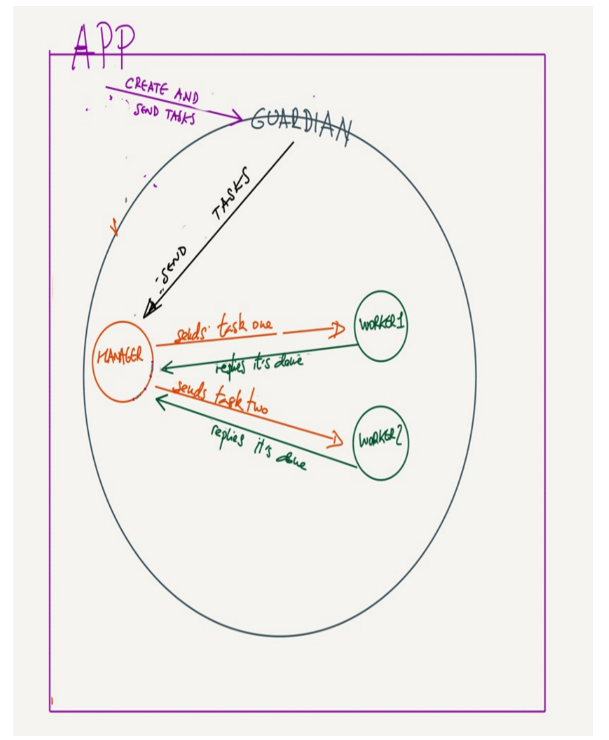 APP
CREATE AND
SEND TASKS
GUARDIAN
SEND TASKS
MANAGER
sends task one
WORKER1
replies it's done
sends task two
WORKER2
replies it's done